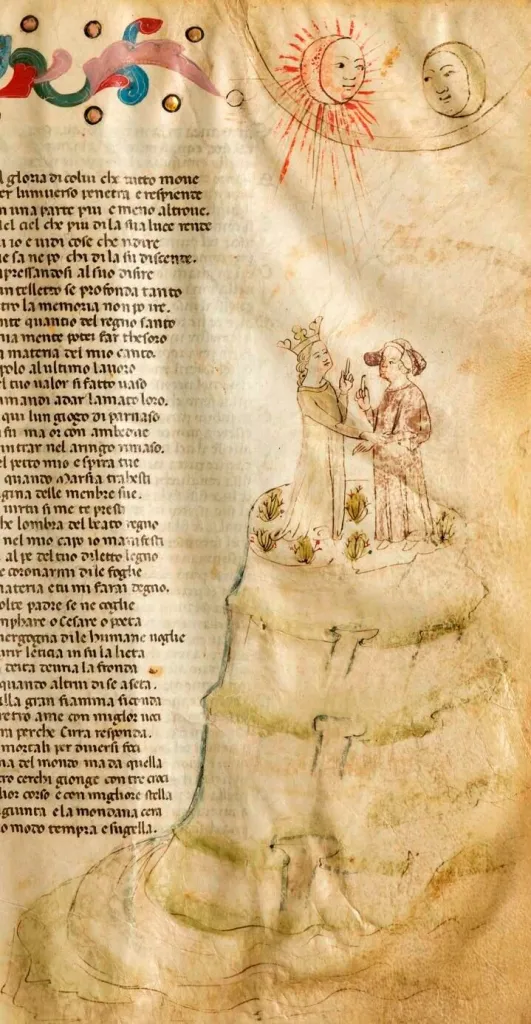 a gloria di colui che tutto move
er luniverso penetra e resplente
n una parte piu e meno altroue.
el ciel che piu di la sua luce rente
u io e uidi cose che ridire
e sa ne po chi di la su discente.
apressandosi al suo disire
intelletto se profonda tanto
tro la memoria non po ire.
nte quanto del regno santo
ia mente potei far thesoro
a materia del mio canto.
polo al ultimo lauoro
l tuo valor si fatto uaso
imandi a dar lamato loro.
qui lun giogo di parnaso
fu ma or con ambedue
intrar nel aringo rimaso.
el petto mio e spira tue
quando Marsia trahesti
agina delle menbre sue.
uirtu si me te presti
he lombra del beato regno
nel mio capo io manifesti
al pe del tuo diletto legno
e coronarmi di le foglie
materia e tu mi farai degno.
olte padre se ne coglie
mphare o Cesare o poeta
uergogna di le humane uoglie
urir leticia in su la lieta
deita deuria la fronda
quando altrui di se aseta.
lla gran fiamma siconda
retro a me con miglor uoci
ra perche Cirra responda.
mortali per diuersi foci
na del mondo ma da quella
tro cerchi gionge con tre croci
lior corso e con migliore stella
giunta e la mondana cera
o modo tempra e sugella.